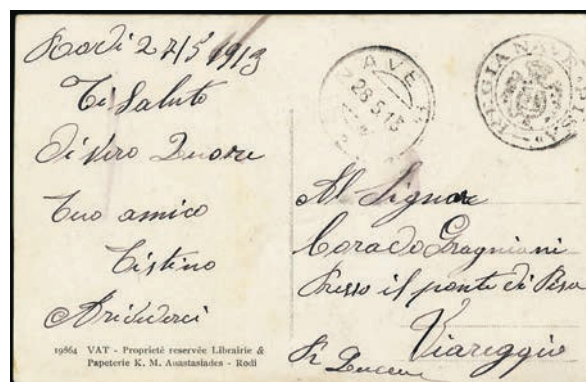 Rodi 27/5 1913
Ti Saluto
di Vero Quore
tuo amico
Tistino
Arivederci
19864 VAT - Proprieté reservée Librairie &
Papeterie K. M. Anastasiades - Rodi
NAVE
28.5.13
REGIA NAVE
Al Signore
Corado Gragniani
Presso il ponte di Pisa
Viareggio